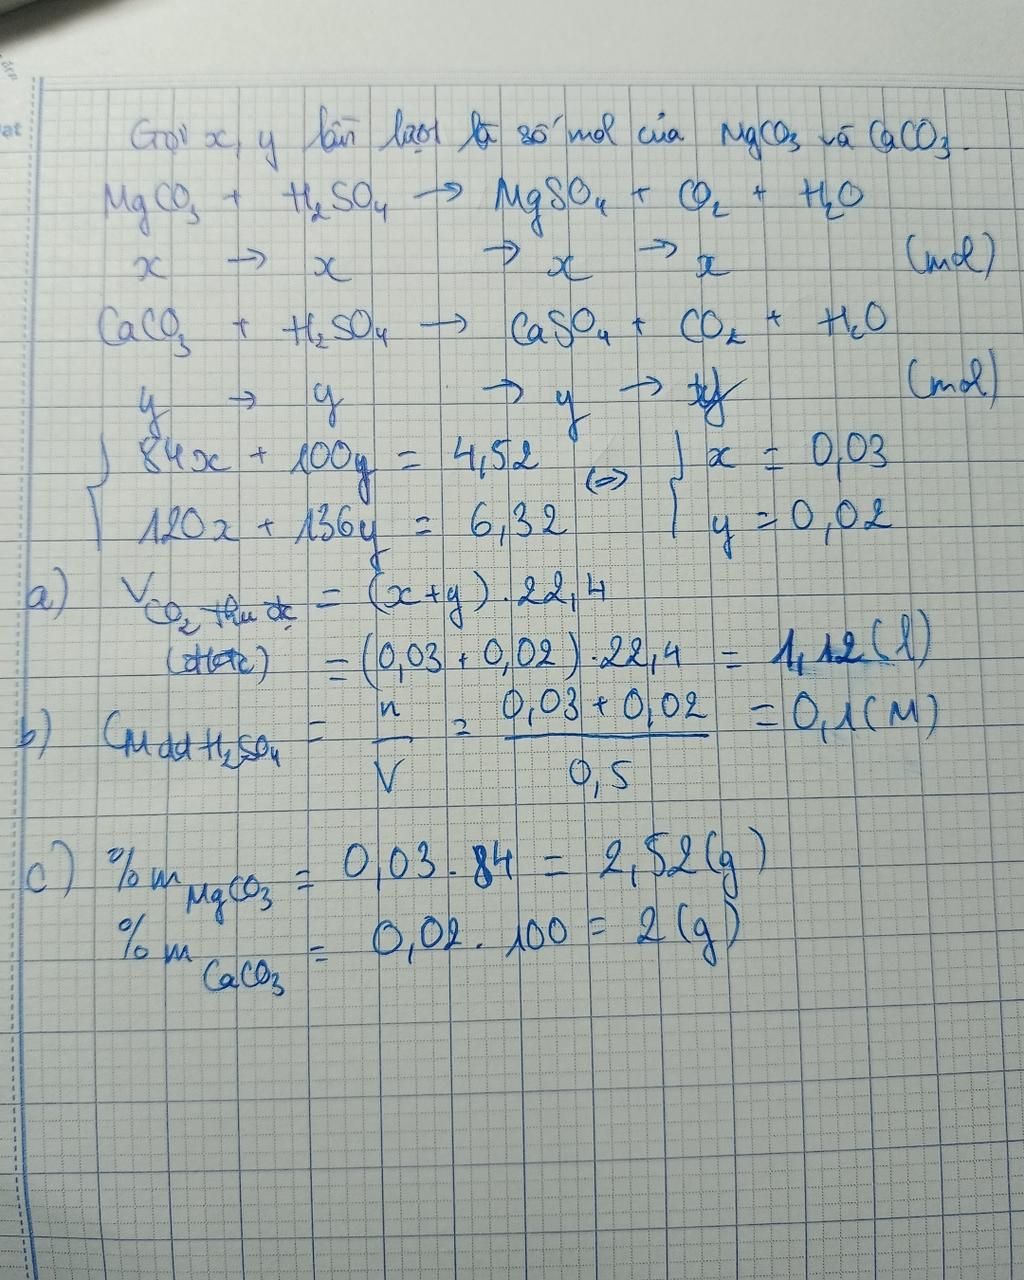 Gọi x, y lần lượt là số mol của MgCO₃ và CaCO₃.
MgCO₃ + H₂SO₄ → MgSO₄ + CO₂ + H₂O
x → x → x → x (mol)
CaCO₃ + H₂SO₄ → CaSO₄ + CO₂ + H₂O
y → y → y → y (mol)
{ 84x + 100y = 4,52 ⇔ { x = 0,03
120x + 136y = 6,32 y = 0,02
a) V CO₂ thu đc = (x+y).22,4
= (0,03 + 0,02).22,4 = 1,12 (l)
b) CM dd H₂SO₄ = n/V = (0,03 + 0,02)/0,5 = 0,1 (M)
c) %m MgCO₃ = 0,03 . 84 = 2,52 (g)
%m CaCO₃ = 0,02 . 100 = 2 (g)